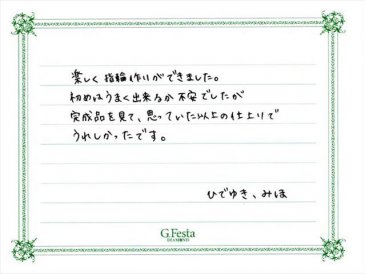 楽しく指輪作りができました。
初めはうまく出来るか不安でしたが
完成品を見て、思っていた以上の仕上りで
うれしかったです。
ひでゆき、みほ
G.Festa
DIAMONDS